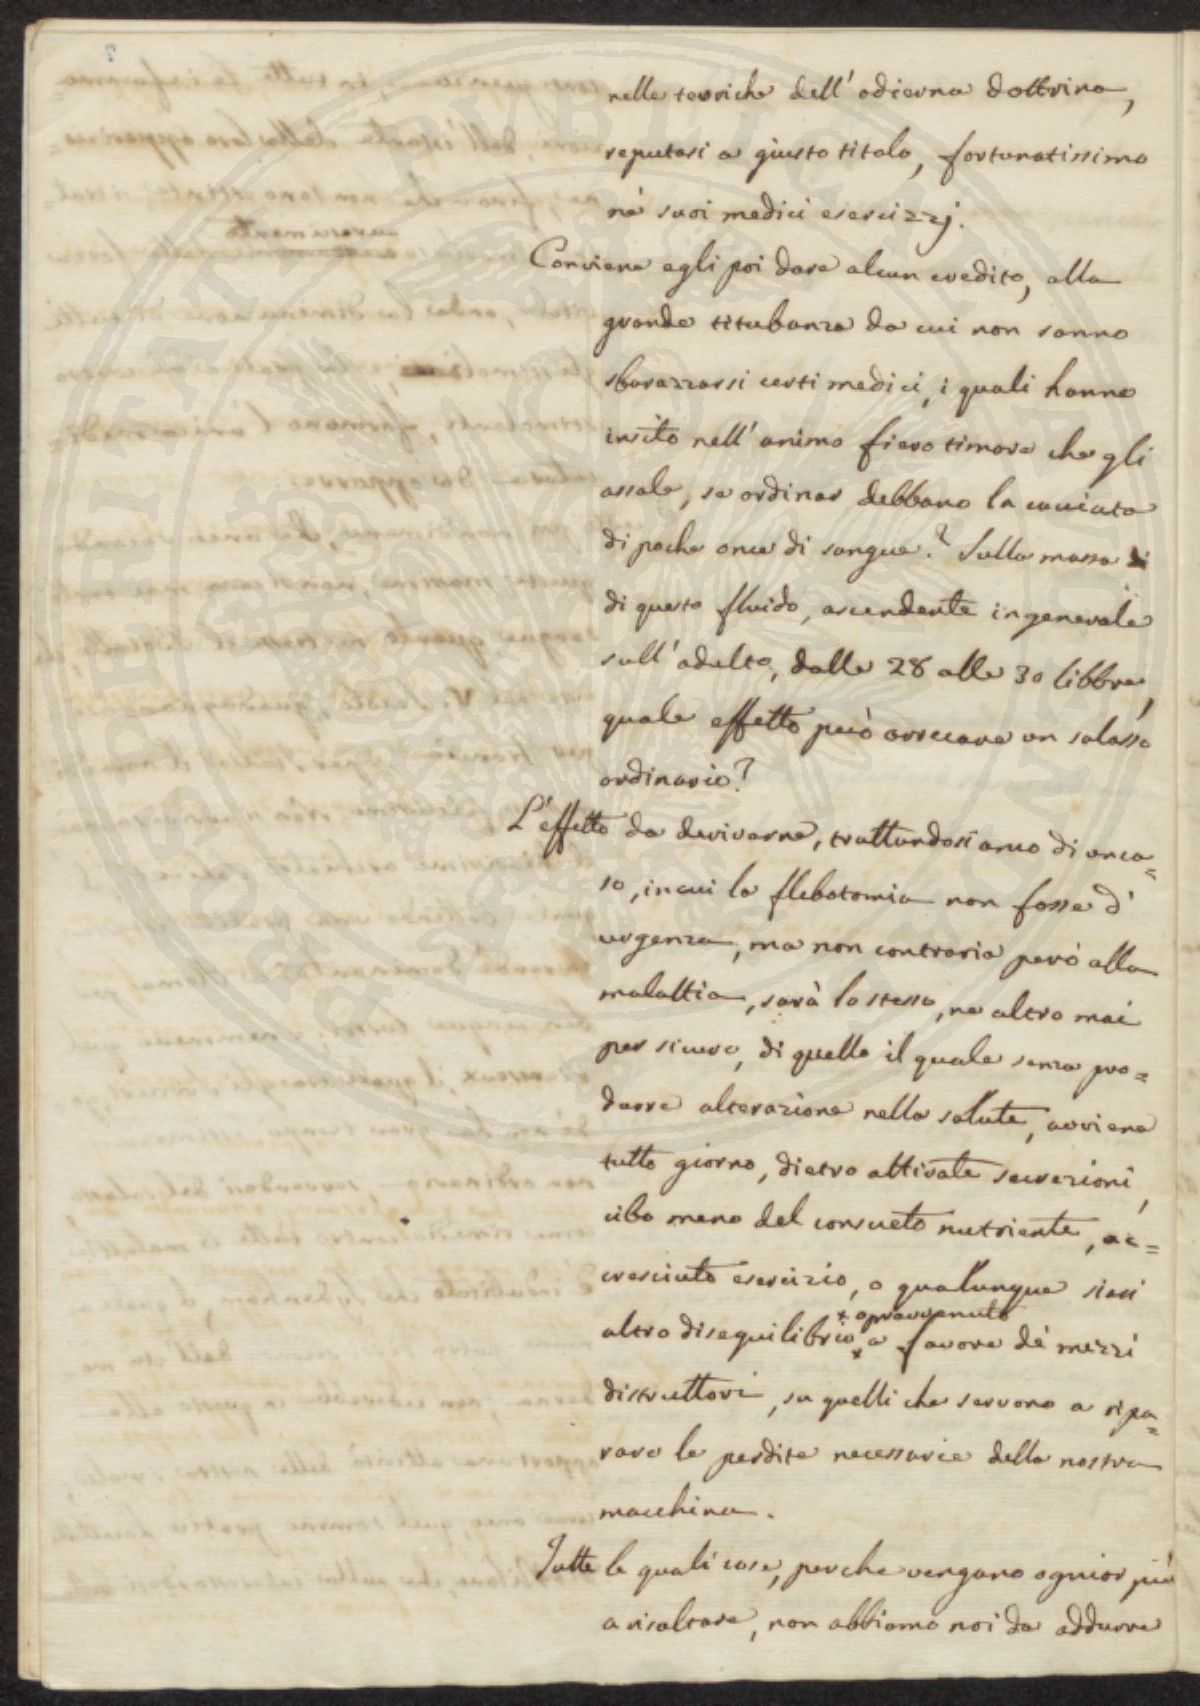 nelle teoriche dell' odierna dottrina,
reputasi a giusto titolo, fortunatissimo
nè suoi medici esercizzj.
Conviene egli poi dare alcun credito, alla
grande titubanza da cui non sanno
sbarazzarsi certi medici, i quali hanno
insito nell' animo fiero timore che gli
assale, se ordinar debbano la cacciata
di poche once di sangue? Sulla massa
di questo fluido, ascendente in generale
sull' adulto, dalle 28 alle 30 libbre,
quale effetto può arrecare un salasso
ordinario?
L'effetto da derivarne, trattandosi anco di un ca=
so, in cui la flebotomia non fosse d'
urgenza, ma non contraria però alla
malattia, sarà lo stesso, ne altro mai
per sicuro, di quello il quale senza pro=
durre alterazione nella salute, avviene
tutto giorno, dietro attivate secrezioni,
cibo meno del consueto nutriente, ac=
cresciuto esercizio, o qualunque siasi
altro disequilibrio sopravvenuto a favore dè mezzi
distruttori, su quelli che servono a ripa=
rare le perdite necessarie della nostra
macchina.
Tutte le quali cose, perche vengano ognior più
a risaltare, non abbiamo noi da addurre